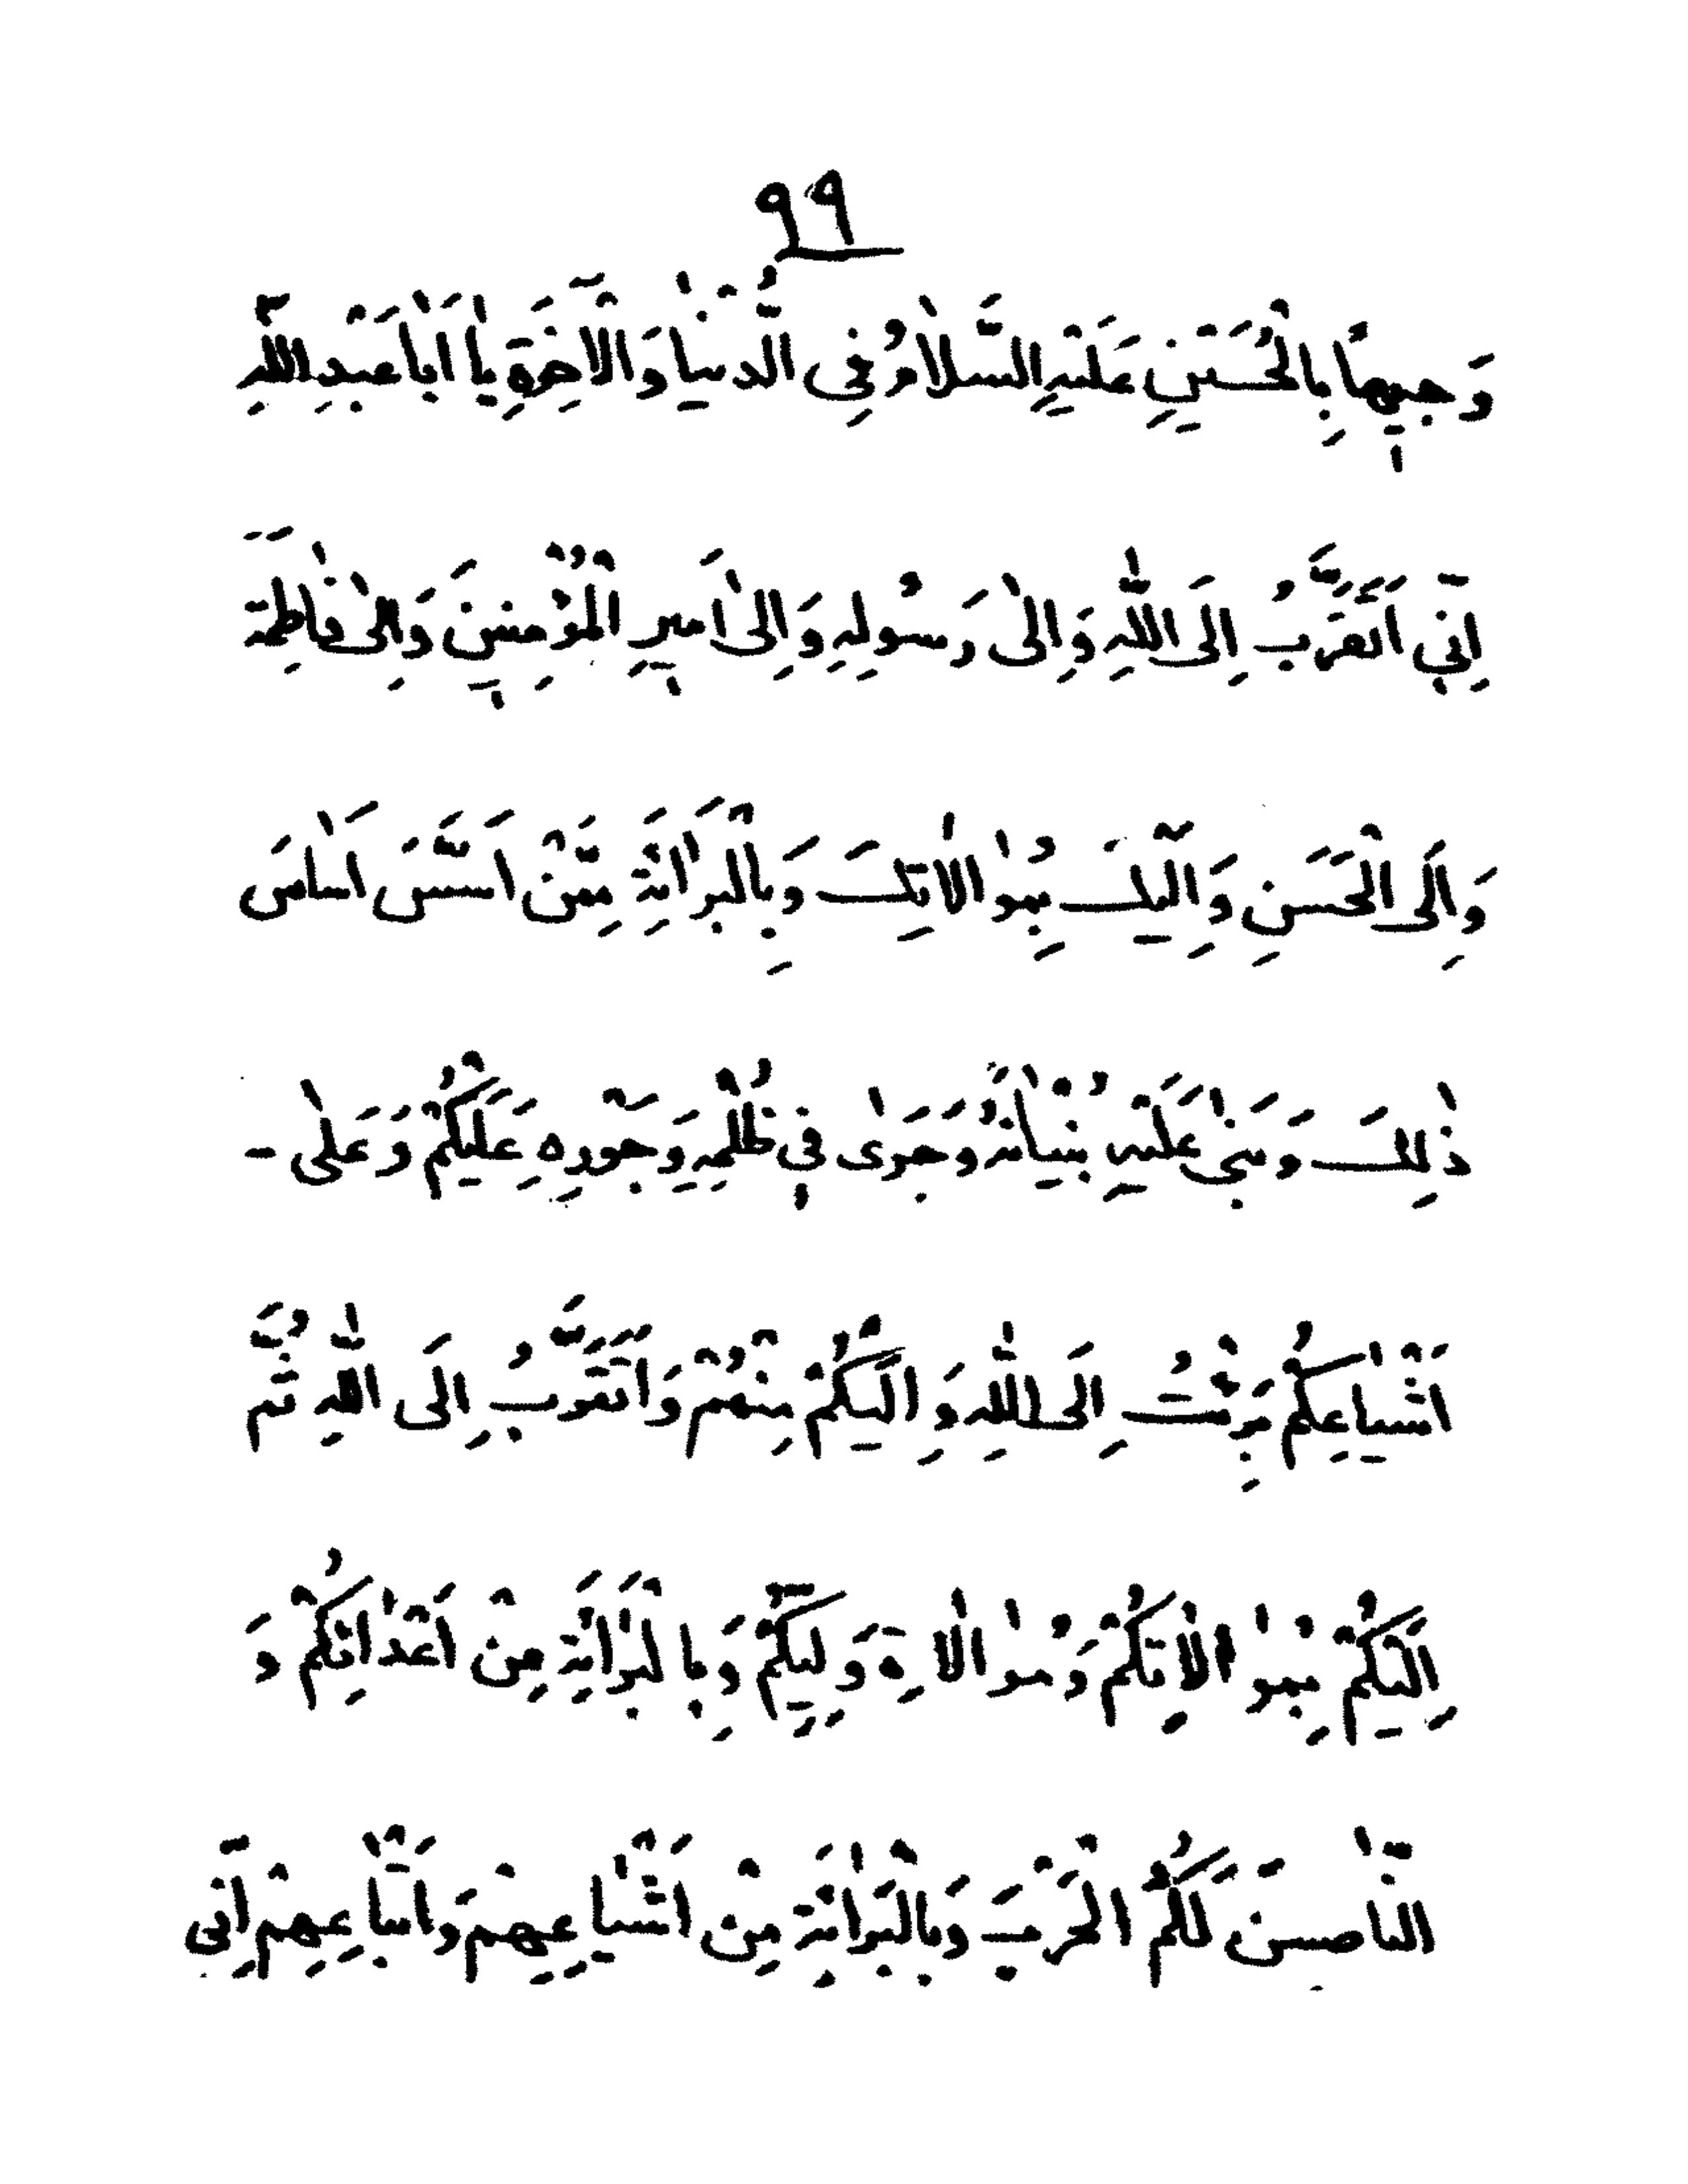 ٩٩
وَجِيهًا بِالْحُسَيْنِ عَلَيْهِ السَّلَامُ فِي الدُّنْيَا وَالْآخِرَةِ يَا أَبَا عَبْدِ اللَّهِ
اِنِّي اَتَقَرَّبُ اِلَى اللّٰهِ وَاِلىٰ رَسُولِهِ وَاِلىٰ اَمِيرِ الْمُؤْمِنِينَ وَاِلىٰ فَاطِمَةَ
وَاِلَى الْحَسَنِ وَاِلَيْكَ بِمُوٰالاٰتِكَ وَبِالْبَرٰائَةِ مِمَّنْ اَسَّسَ اَسٰاسَ
ذٰلِكَ وَبَنىٰ عَلَيْهِ بُنْيٰانَهُ وَجَرىٰ فِي ظُلْمِهِ وَجَوْرِهِ عَلَيْكُمْ وَعَلىٰ -
اَشْيٰاعِكُمْ بَرِئْتُ اِلَى اللّٰهِ وَاِلَيْكُمْ مِنْهُمْ وَاَتَقَرَّبُ اِلَى اللّٰهِ ثُمَّ
اِلَيْكُمْ بِمُوٰالاٰتِكُمْ وَمُوٰالاٰةِ وَلِيِّكُمْ وَبِالْبَرٰائَةِ مِنْ اَعْدٰائِكُمْ وَ
النّٰاصِبِينَ لَكُمُ الْحَرْبَ وَبِالْبَرٰائَةِ مِنْ اَشْيٰاعِهِمْ وَاَتْبٰاعِهِمْ اِنِّي